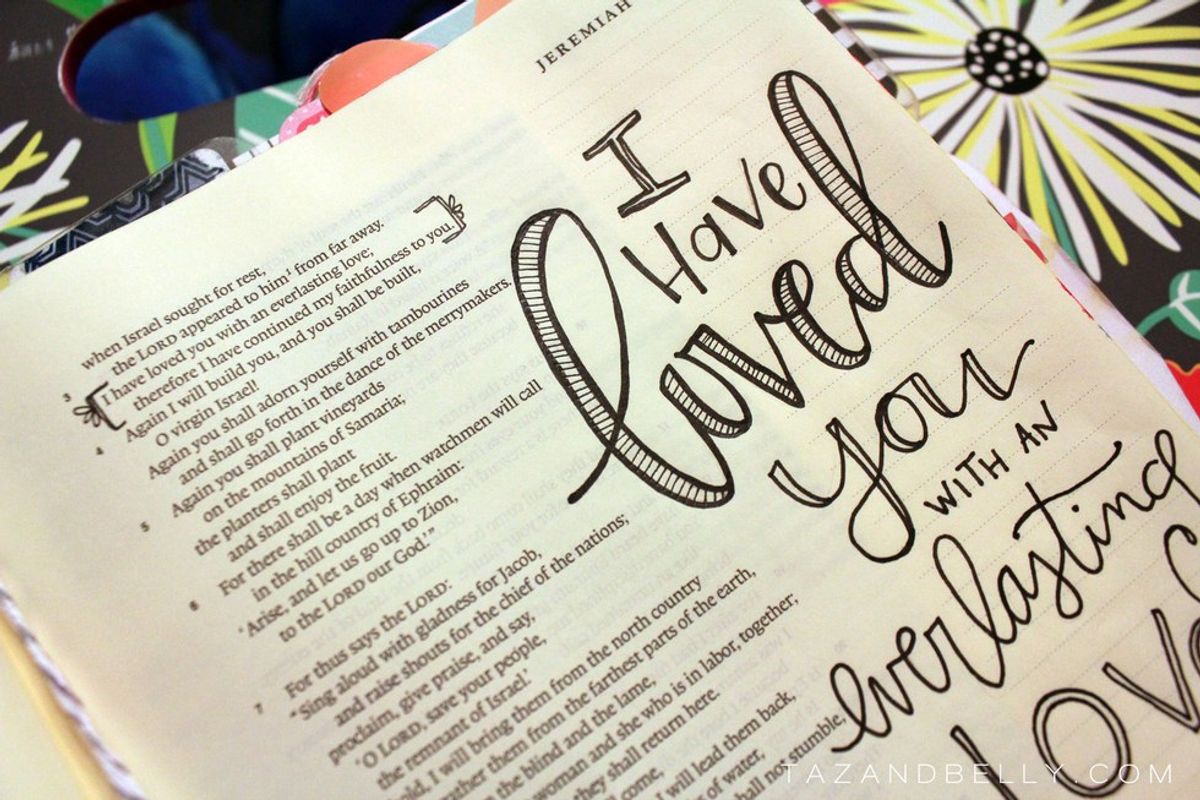 JEREMIAH
when Israel sought for rest,
the LORD appeared to him¹ from far away.
3 I have loved you with an everlasting love;
therefore I have continued my faithfulness to you.
4 Again I will build you, and you shall be built,
O virgin Israel!
Again you shall adorn yourself with tambourines
and shall go forth in the dance of the merrymakers.
5 Again you shall plant vineyards
on the mountains of Samaria;
the planters shall plant
and shall enjoy the fruit.
6 For there shall be a day when watchmen will call
in the hill country of Ephraim:
‘Arise, and let us go up to Zion,
to the LORD our God.’”
7 For thus says the LORD:
“Sing aloud with gladness for Jacob,
and raise shouts for the chief of the nations;
proclaim, give praise, and say,
‘O LORD, save your people,
the remnant of Israel.’
I will bring them from the north country
them from the farthest parts of the earth,
the blind and the lame,
woman and she who is in labor, together;
they shall return here.
come,
I will lead them back,
of water,
shall not stumble,
I
Have
loved
you
WITH AN
everlasting
LOVE
TAZANDBELLY.COM